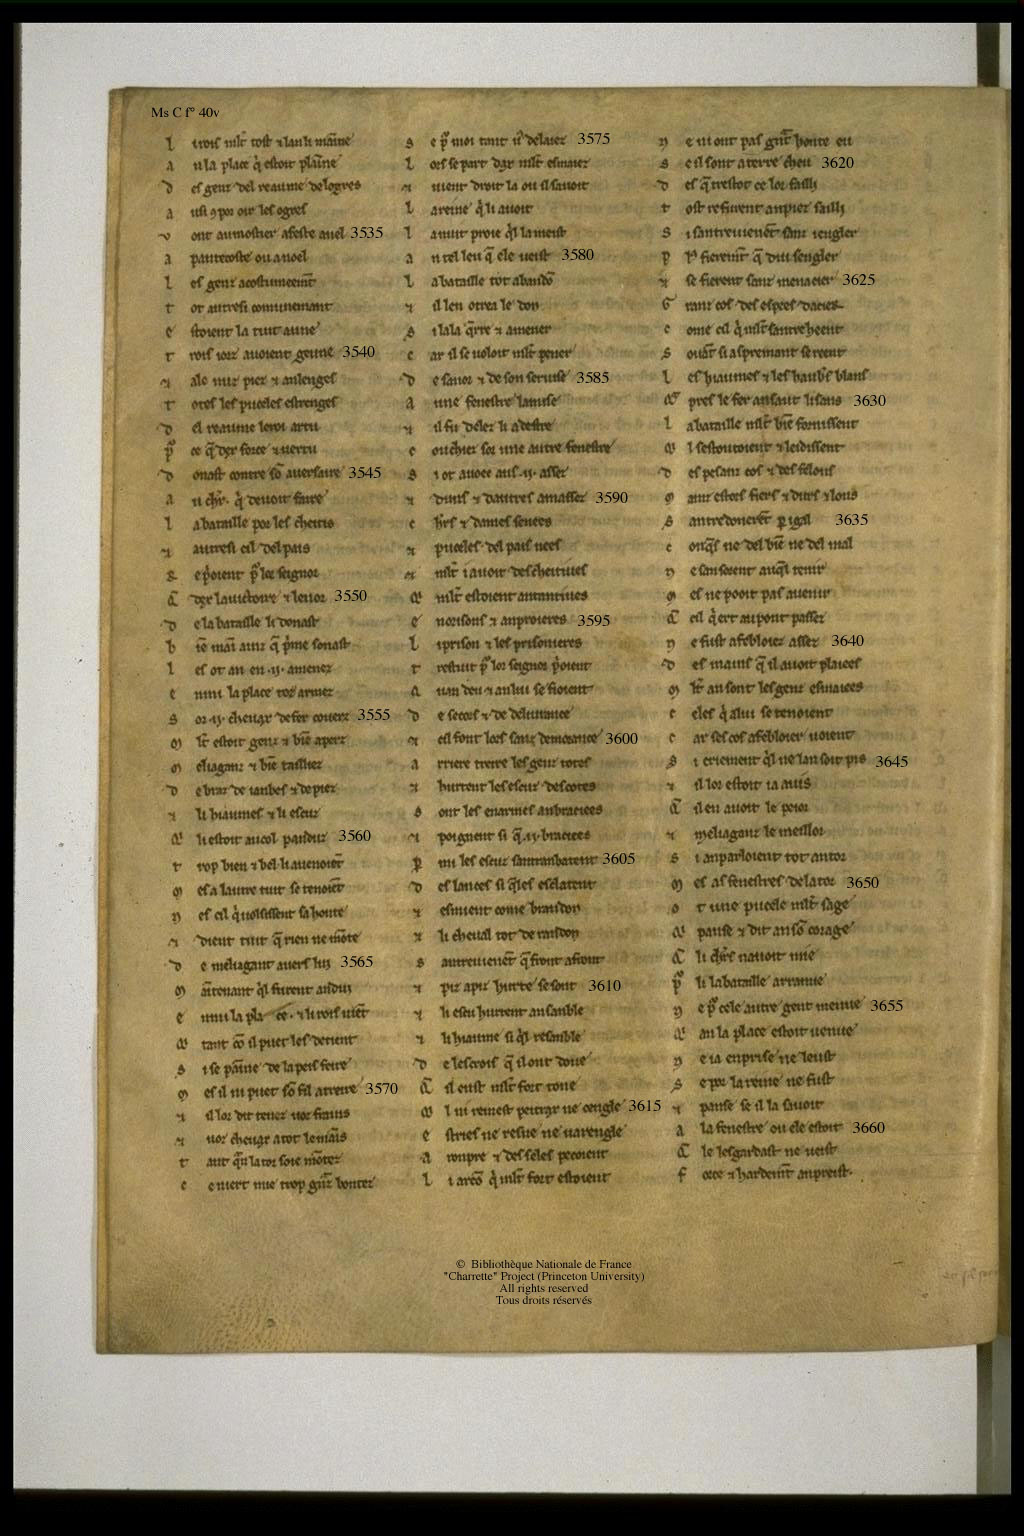 Ms C f° 40v
l i rois ml̃t tost ⁊ lan li mainne
a u la place q̇ estoit plainne
d es genz del reaume de logres
a usi ꝯ por oir les ogres
v ont au mostier a feste anel 3535
a pantecoste ou a noel
l es genz acostumeem̃t
t ot autresi comunemant
e stoient la tuit aüne
t rois iorz auoient geune 3540
⁊ ale nuz piez ⁊ an lenges
t otes les puceles estrenges
d el reaume le roi artu
p̃ ce q̃ dex force ⁊ uertu
d onast contre sõ auersaire 3545
a u chr̃. q̇ deuoit faire
l a bataille por les cheitis
⁊ autresi cil del païs
r eprioient p̃ lor seignor
q̃ dex la uictoire ⁊ lenor 3550
d e la bataille li donast
b iẽ main ainz q̃ pͥme sonast
l es ot an en .ij. amenez
e nmi la place toz armez
s or .ij. cheuax de fer couerz 3555
m l̃t estoit genz ⁊ biẽ aperz
m eliaganz ⁊ biẽ tailliez
d e braz de ianbes ⁊ de piez
⁊ li hiaumes ⁊ li escuz
q̇ li estoit au col panduz 3560
t rop bien ⁊ bel li auenoiẽt
m es a lautre tuit se tenoiẽt
n es cil q̇ uolsissent sa honte
⁊ dient tuit q̃ rien ne mõte
d e meliagant auers lui 3565
m aĩtenant q̇l furent andui
e nmi la place. ⁊ li rois uiẽt
q̇ tant cõ il puet les detient
s i se paĩne de la pes feire
m es il ni puet sõ fil atreire 3570
⁊ il lor dit tenez uoz frains
⁊ uoz cheuax a tot le mains
t ant q̃n la tor soie mõtez
c e niert mie trop granz bontez
s e p̃ moi tant uͦ delaiez 3575
l ors se part dax ml̃t esmaiez
⁊ uient droit la ou il sauoit
l a reine q̇ li auoit
l a nuit proie q̇l la meist
a n tel leu q̃ ele ueist 3580
l a bataille tot abandõ
⁊ il len otrea le don
s i lala q̃rre ⁊ amener
c ar il se uoloit ml̃t pener
d e sanor ⁊ de son seruise 3585
a une fenestre la mise
⁊ il fu delez li a destre
c ouchiez sor une autre fenestre
s i ot auoec aus .ij. assez
⁊ dunˢ ⁊ dautres amassez 3590
c hr̃s ⁊ dames senees
⁊ puceles del païs nees
⁊ ml̃t i auoit des cheitiues
q̇ ml̃t estoient antantiues
e n orisons ⁊ an proieres 3595
l i prison ⁊ les prisonieres
t restuit p̃ lor seignor prioient
q̃ uan deu ⁊ an lui se fioient
d e secors ⁊ de deliurance
⁊ cil font lors sanz demorance 3600
a rriere treire les genz totes
⁊ hurtent les escuz des cotes
s ont les enarmes anbraciees
⁊ poignent si q̃ .ij. braciees
p̲ mi les escuz santranbatent 3605
d es lances si q̃les esclatent
⁊ esmient come brandon
⁊ li cheual tot de randon
s antreuienẽt q̃ front a front
⁊ piz a piz hurte se sont 3610
⁊ li escu hurtent ansanble
⁊ li hiaume si q̇l resanble
d e lescrois q̃ il ont doné
q̃ il eust ml̃t fort toné
q̇l ni remest peitrax ne cengle 3615
e striés ne resne ne uarengle
a ronpre ⁊ des seles peçoient
l i arcõ q̇ ml̃t fort estoient
n e ni ont pas grant honte eu
s e il sont a terre cheu 3620
d es q̃ trestot ce lor failli
t ost refurent an piez sailli
s i santreuienẽt sanz iengler
p̃ l fieremt̃ q̃ dui sengler
⁊ se fierent sanz menacier 3625
g ranz cos des espees dacier
c ome cil q̇ ml̃t santreheent
s ouãt si aspremant se reent
l es hiaumes ⁊ les haubers blans
q̃ pres le fer an saut li sans 3630
l a bataille ml̃t biẽ fornissent
q̇ l sestoutoient ⁊ leidissent
d es pesanz cos ⁊ des felons
m ainz estors fiers ⁊ durs ⁊ lons
s antredonerẽt p̲ igal 3635
c onq̃s ne del biẽ ne del mal
n e san sorent auq̃l tenir
m es ne pooit pas auenir
q̃ cil q̇ ert au pont passez
n e fust afebloiez assez 3640
d es mains q̃ il auoit plaiees
m l̃t an sont les genz esmaiees
c eles q̇ a lui se tenoient
c ar ses cos afebloier uoient
s i criement q̇l ne lan soit pis 3645
⁊ il lor estoit ia auis
q̃ il en auoit le peior
⁊ meliaganz le meillor
s i an parloient tot antor
m es as fenestres de la tor 3650
o t une pucele ml̃t sage
q̇ panse ⁊ dit an sõ corage
q̃ li chr̃s nauoit mie
p̃ li la bataille arramie
n e p̃ cele autre gent menue 3655
q̇ an la place estoit uenue
n e ia enprise ne leust
s e por la reine ne fust
⁊ panse se il la sauoit
a la fenestre ou ele estoit 3660
q̃ le lesgardast ne ueist
f orce ⁊ hardemt̃ an preist.
© Bibliothèque Nationale de France
"Charrette" Project (Princeton University)
All rights reserved
Tous droits réservés